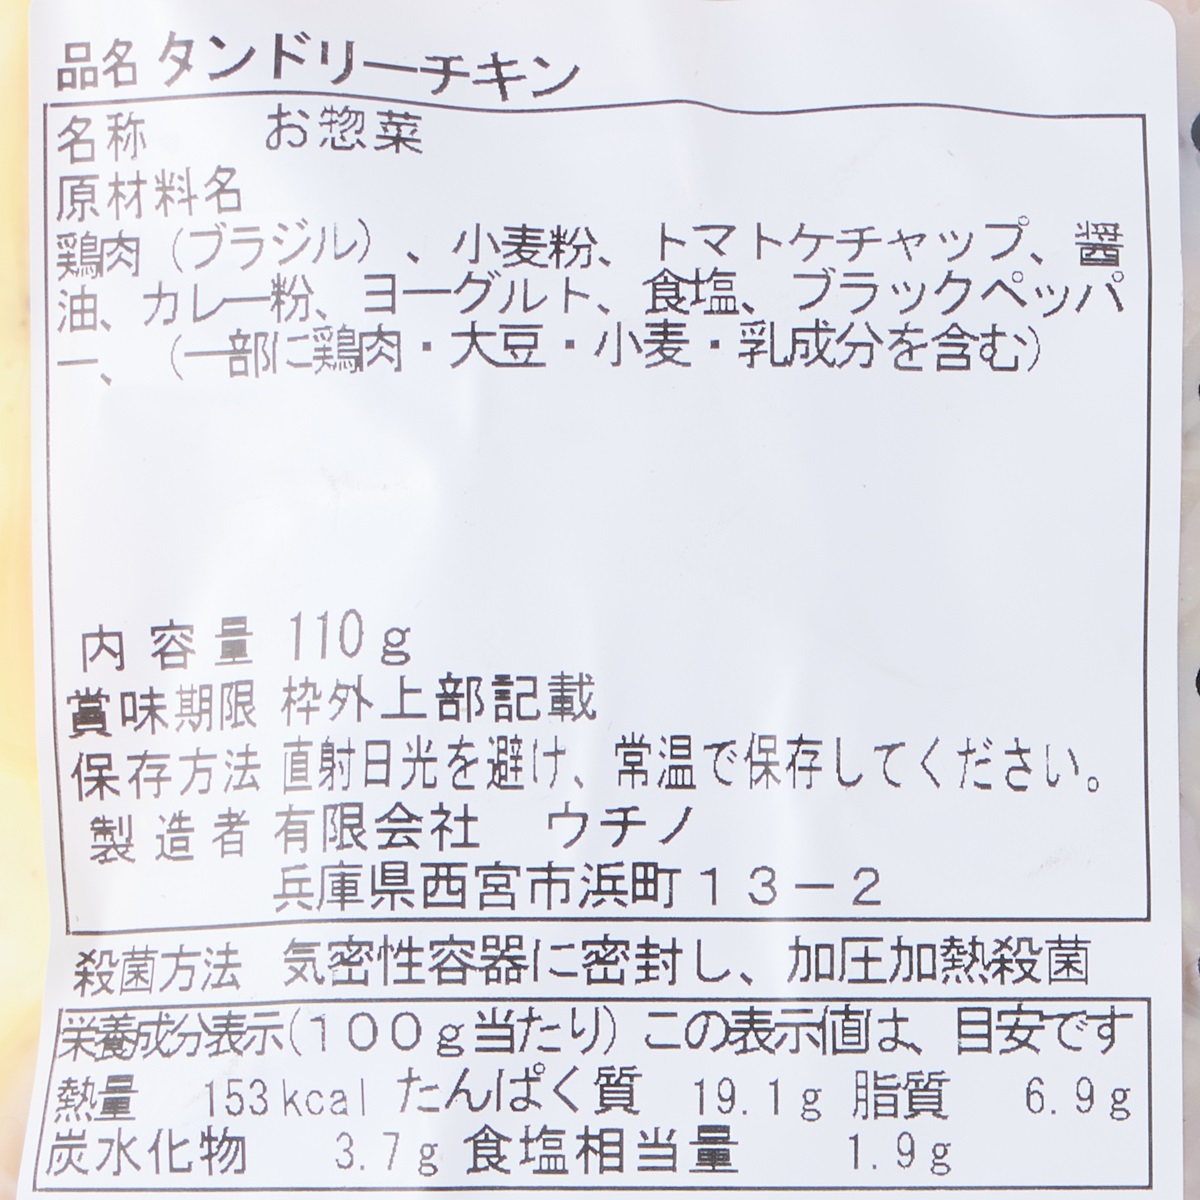 品名 タンドリーチキン
名称 お惣菜
原材料名
鶏肉（ブラジル）、小麦粉、トマトケチャップ、醤
油、カレー粉、ヨーグルト、食塩、ブラックペッパ
ー、（一部に鶏肉・大豆・小麦・乳成分を含む）
内容量 110g
賞味期限 枠外上部記載
保存方法 直射日光を避け、常温で保存してください。
製造者 有限会社 ウチノ
兵庫県西宮市浜町１３－２
殺菌方法 気密性容器に密封し、加圧加熱殺菌
栄養成分表示(１００ｇ当たり) この表示値は、目安です
熱量 153kcal たんぱく質 19.1g 脂質 6.9g
炭水化物 3.7g 食塩相当量 1.9g